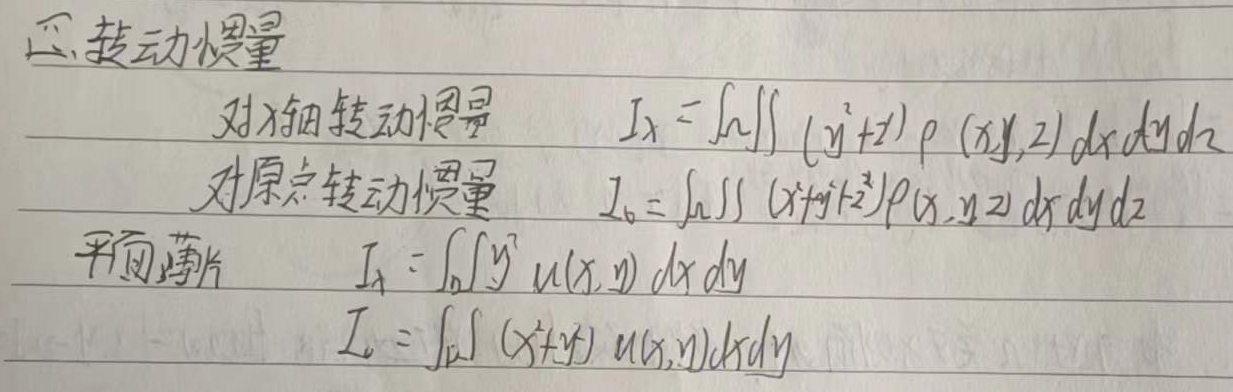 三、转动惯量
对x轴转动惯量 Iₓ = ∫Ω∫∫ (y²+z²) ρ (x,y,z) dx dy dz
对原点转动惯量 I₀ = ∫Ω∫∫ (x²+y²+z²) ρ(x,y,z) dx dy dz
平面薄片 Iₓ = ∫D∫ y² u(x,y) dx dy
I₀ = ∫D∫ (x²+y²) u(x,y) dx dy